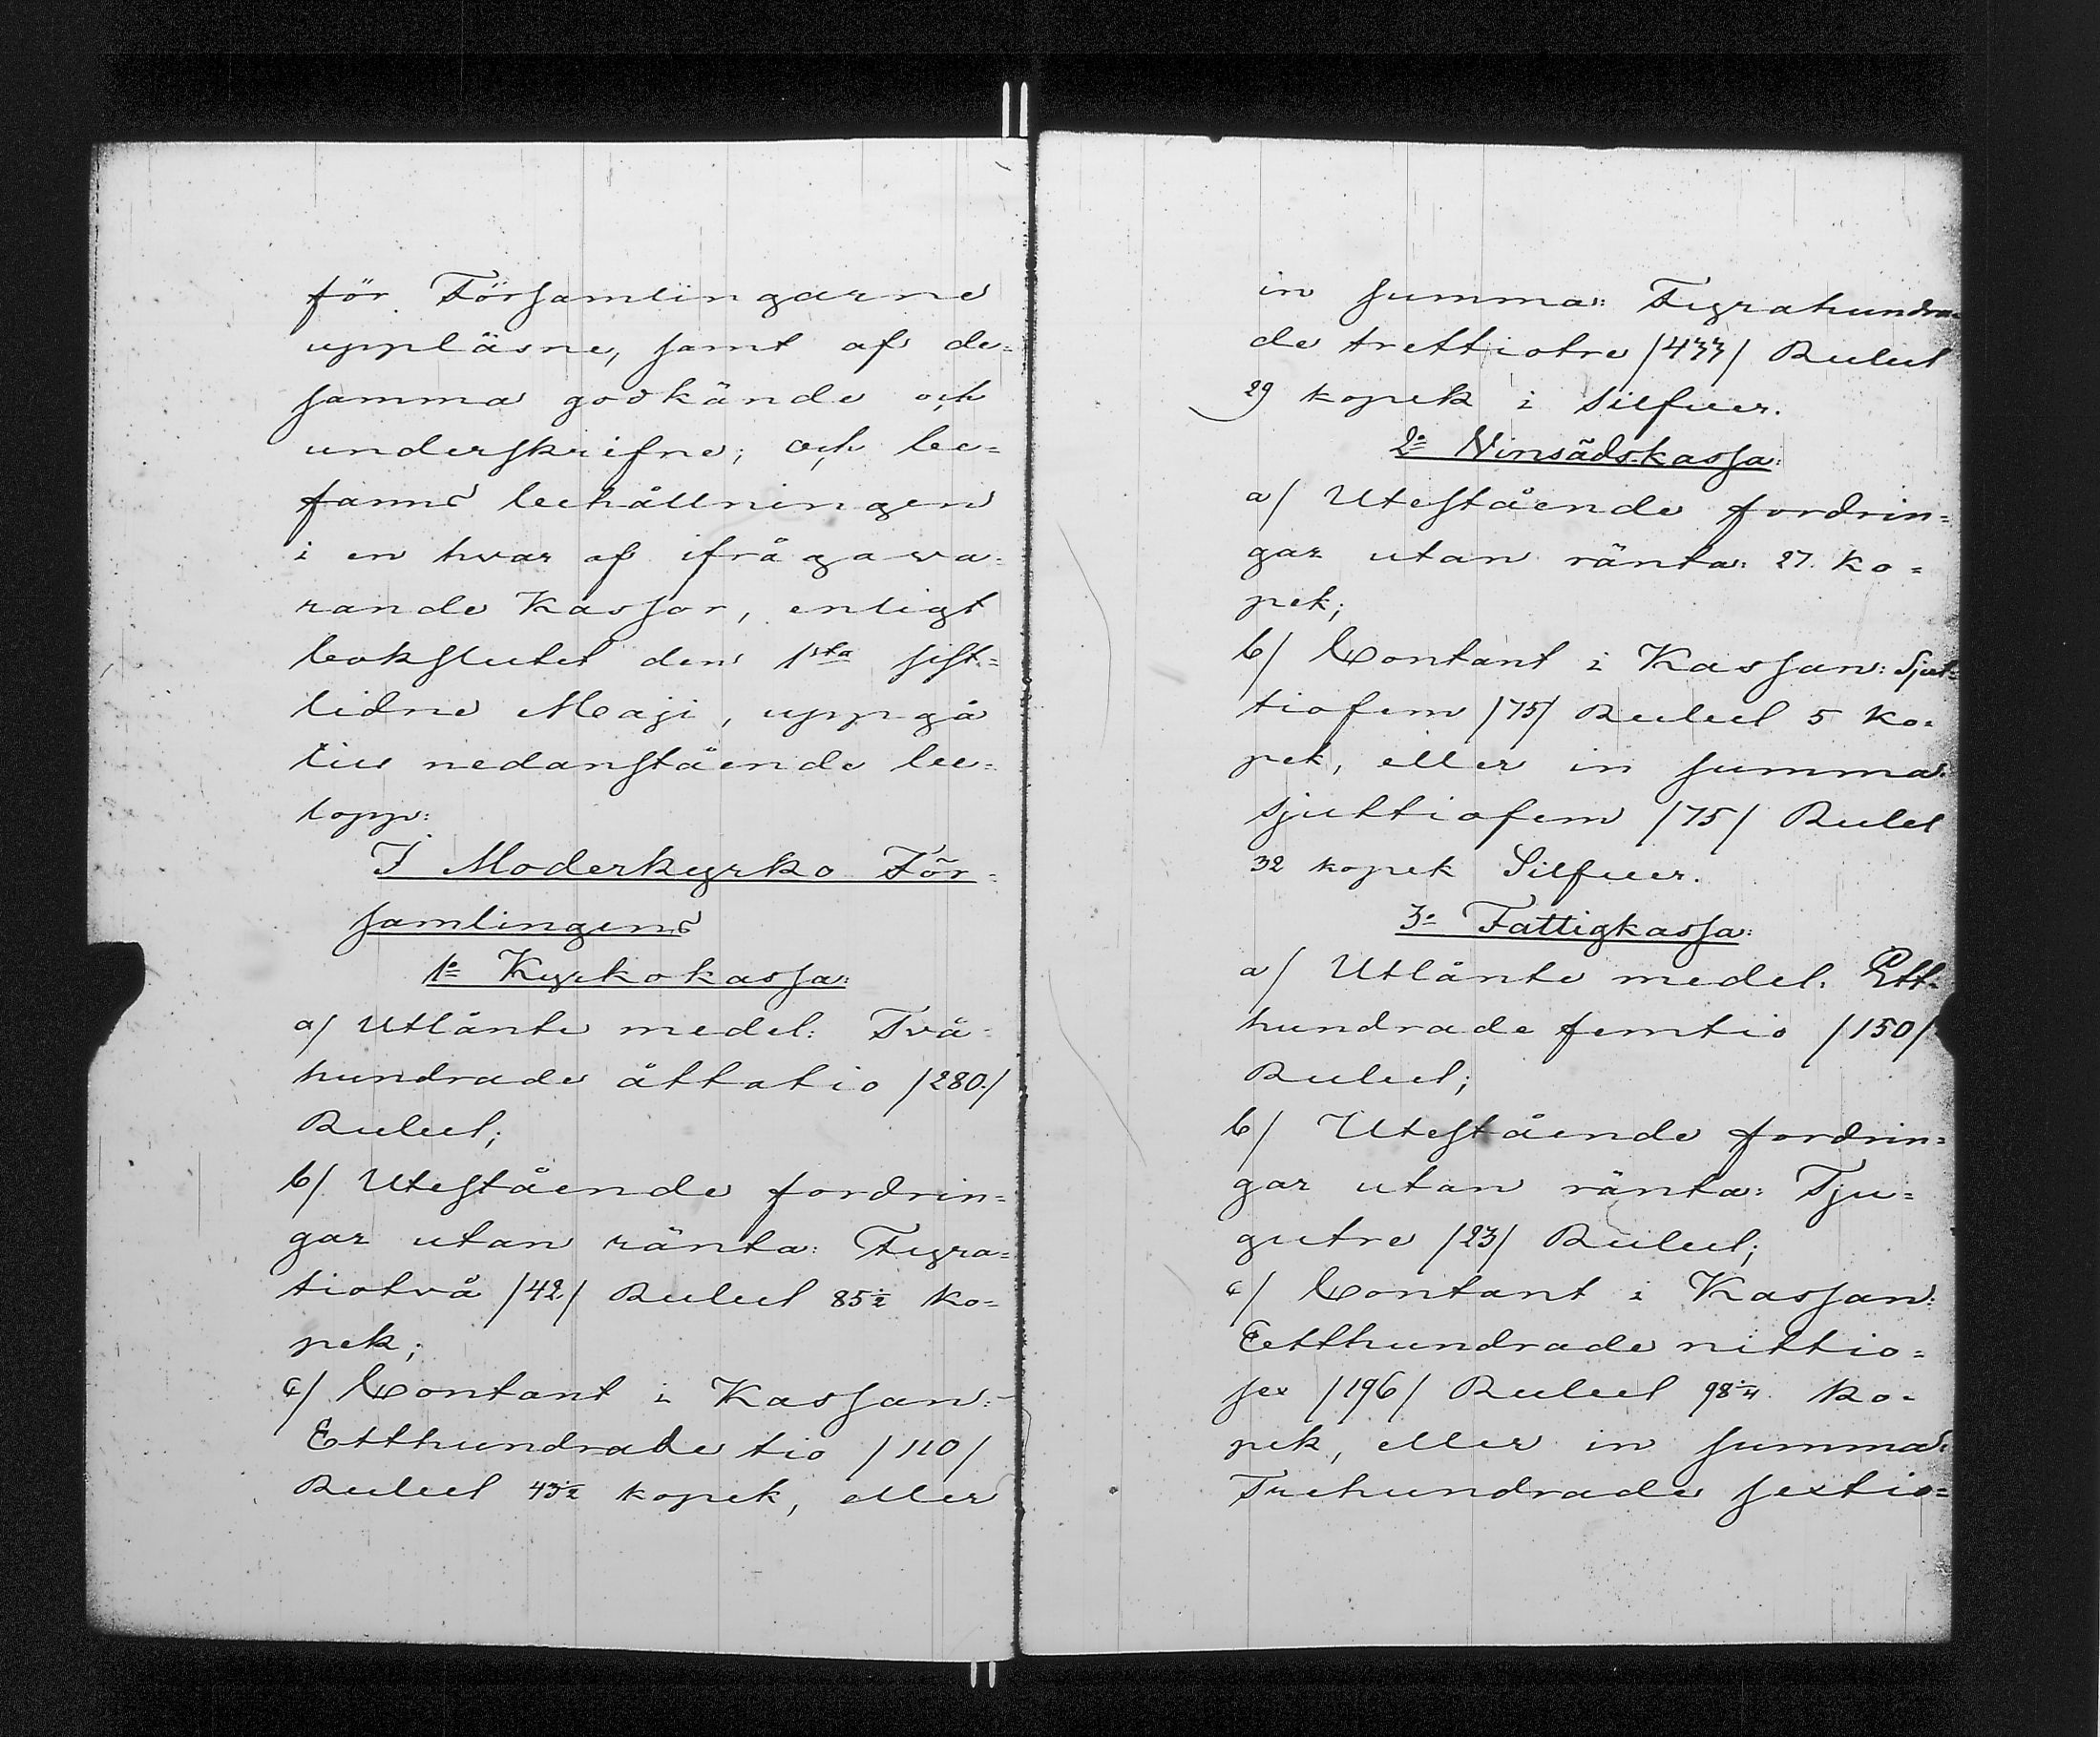 för Församlingarne
uppläsne, samt af de=
samma godkände och
underskrifne; och be=
fanns behållningen
i en hvar af ifrågava=
rande Kassor, enligt
bokslutet den 1sta sist=
lidne Maji, uppgå
till nedanstående be=
lopp:
I Moderkyrko För=
samlingens
1o Kyrkokassa:
a/ Utlånte medel: Två=
hundrade åttatio /280/
Rubel;
b/ Utestående fordrin=
gar utan ränta: Fyra=
tiotvå /42/ Rubel 85½ ko=
pek;
c/ Contant i Kassan:
Etthundrade tio /110/
Rubel 43½ kopek, eller
in summa: Fyrahundra=
de trettiotre /433/ Rubel
29 kopek i Silfver.
2o Vinsädskassa:
a/ Utestående fordrin=
gar utan ränta: 27. ko=
pek;
b/ Contant i Kassan: Sjut=
tiofem /75/ Rubel 5 ko=
pek, eller in summa:
sjuttiofem /75/ Rubel
32 kopek Silfver.
3o Fattigkassa:
a/ Utlånte medel. Ett=
hundrade femtio /150/
Rubel;
b/ Utestående fordrin=
gar utan ränta: Tju=
gutre /23/ Rubel;
c/ Contant i Kassan:
Etthundrade nittio=
sex /196/ Rubel 98¼ ko=
pek, eller in summa:
Trehundrade sextio=